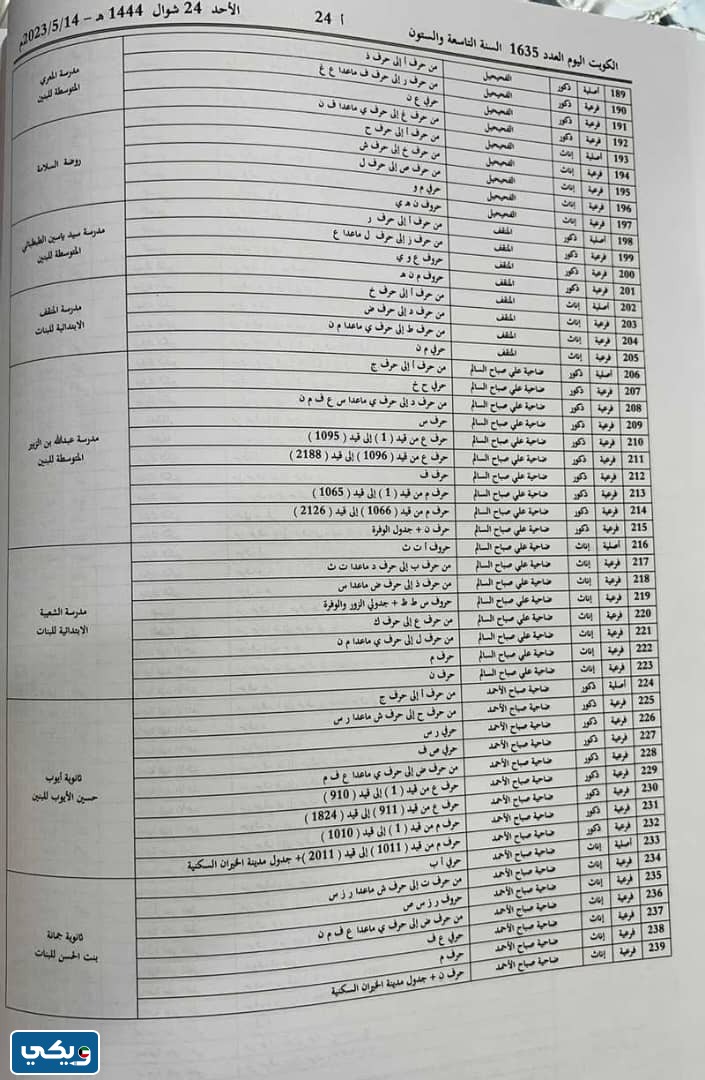 الكويت اليوم العدد 1635 السنة التاسعة والستون أ 24 الأحد 24 شوال 1444 هـ – 2023/5/14م
189 أصلية ذكور الفحيحيل من حرف أ إلى حرف ذ
190 فرعية ذكور الفحيحيل من حرف ر إلى حرف ف ماعدا ع غ
191 فرعية ذكور الفحيحيل حرفي ع ن
192 فرعية ذكور الفحيحيل من حرف غ إلى حرف ي ماعدا ف ن
مدرسة المعري
المتوسطة للبنين
193 أصلية إناث الفحيحيل من حرف أ إلى حرف ح
194 فرعية إناث الفحيحيل من حرف خ إلى حرف ش
195 فرعية إناث الفحيحيل من حرف ص إلى حرف ل
196 فرعية إناث الفحيحيل حرفي م و
197 فرعية إناث الفحيحيل حروف ن هـ ي
روضة السلامة
198 أصلية ذكور المنقف من حرف أ إلى حرف ر
199 فرعية ذكور المنقف من حرف ز إلى حرف ل ماعدا ع
200 فرعية ذكور المنقف حروف ع و ي
201 فرعية ذكور المنقف حروف م ن هـ
مدرسة سيد ياسين الطبطبائي
المتوسطة للبنين
202 أصلية إناث المنقف من حرف أ إلى حرف خ
203 فرعية إناث المنقف من حرف د إلى حرف ض
204 فرعية إناث المنقف من حرف ط إلى حرف ي ماعدا م ن
205 فرعية إناث المنقف حرفي م ن
مدرسة المنقف
الابتدائية للبنات
206 أصلية ذكور ضاحية علي صباح السالم من حرف أ إلى حرف ج
207 فرعية ذكور ضاحية علي صباح السالم حرفي ح خ
208 فرعية ذكور ضاحية علي صباح السالم من حرف د إلى حرف ي ماعدا س ع ف م ن
209 فرعية ذكور ضاحية علي صباح السالم حرف س
210 فرعية ذكور ضاحية علي صباح السالم حرف ع من قيد ( 1 ) إلى قيد ( 1095 )
211 فرعية ذكور ضاحية علي صباح السالم حرف ع من قيد ( 1096 ) إلى قيد ( 2188 )
212 فرعية ذكور ضاحية علي صباح السالم حرف ف
213 فرعية ذكور ضاحية علي صباح السالم حرف م من قيد ( 1 ) إلى قيد ( 1065 )
214 فرعية ذكور ضاحية علي صباح السالم حرف م من قيد ( 1066 ) إلى قيد ( 2126 )
215 فرعية ذكور ضاحية علي صباح السالم حرف ن + جدول الوفرة
مدرسة عبدالله بن الزبير
المتوسطة للبنين
216 أصلية إناث ضاحية علي صباح السالم حروف أ ت ث
217 فرعية إناث ضاحية علي صباح السالم من حرف ب إلى حرف د ماعدا ت ث
218 فرعية إناث ضاحية علي صباح السالم من حرف ذ إلى حرف ض ماعدا س
219 فرعية إناث ضاحية علي صباح السالم حروف س ط ظ + جدولي الزور والوفرة
220 فرعية إناث ضاحية علي صباح السالم من حرف ع إلى حرف ك
221 فرعية إناث ضاحية علي صباح السالم من حرف ل إلى حرف ي ماعدا م ن
222 فرعية إناث ضاحية علي صباح السالم حرف م
223 فرعية إناث ضاحية علي صباح السالم حرف ن
مدرسة الشعيبة
الابتدائية للبنات
224 أصلية ذكور ضاحية صباح الأحمد من حرف أ إلى حرف ج
225 فرعية ذكور ضاحية صباح الأحمد من حرف ح إلى حرف ش ماعدا ر س
226 فرعية ذكور ضاحية صباح الأحمد حرفي ر س
227 فرعية ذكور ضاحية صباح الأحمد حرفي ص ف
228 فرعية ذكور ضاحية صباح الأحمد من حرف ض إلى حرف ي ماعدا ع ف م
229 فرعية ذكور ضاحية صباح الأحمد حرف ع من قيد ( 1 ) إلى قيد ( 910 )
230 فرعية ذكور ضاحية صباح الأحمد حرف ع من قيد ( 911 ) إلى قيد ( 1824 )
231 فرعية ذكور ضاحية صباح الأحمد حرف م من قيد ( 1 ) إلى قيد ( 1010 )
232 فرعية ذكور ضاحية صباح الأحمد حرف م من قيد ( 1011 ) إلى قيد ( 2011 )+ جدول مدينة الخيران السكنية
ثانوية أيوب
حسين الأيوب للبنين
233 أصلية إناث ضاحية صباح الأحمد حرفي أ ب
234 فرعية إناث ضاحية صباح الأحمد من حرف ت إلى حرف ش ماعدا ر ز س
235 فرعية إناث ضاحية صباح الأحمد حروف ر ز س ص
236 فرعية إناث ضاحية صباح الأحمد من حرف ض إلى حرف ي ماعدا ع ف م ن
237 فرعية إناث ضاحية صباح الأحمد حرفي ع ف
238 فرعية إناث ضاحية صباح الأحمد حرف م
239 فرعية إناث ضاحية صباح الأحمد حرف ن + جدول مدينة الخيران السكنية
ثانوية جمانة
بنت الحسن للبنات
ويكي